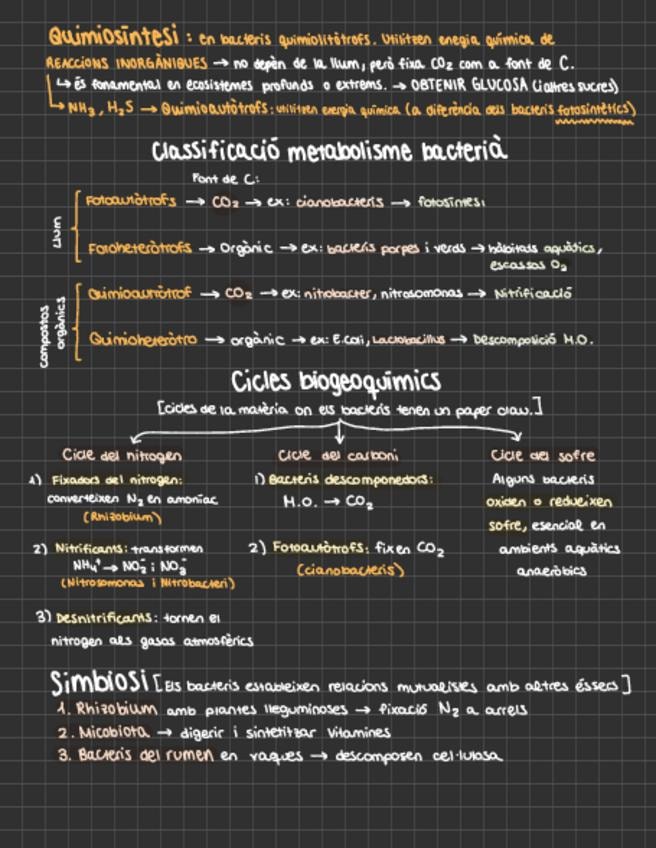 Quimiosíntesi : en bacteris quimiolitòtrofs. Utilitzen enegia química de
REACCIONS INORGÀNIQUES → no depèn de la llum, però fixa CO2 com a font de C.
↳ és fonamental en ecosistemes profunds o extrems. → OBTENIR GLUCOSA (i altres sucres)
↳ NH3, H2S → Quimioautòtrofs: utilitzen energia química (a diferència dels bacteris fotosintètics)
Classificació metabolisme bacterià
Font de C:
Llum
Fotoautòtrofs → CO2 → ex: cianobacteris → fotosíntesi
Fotoheteròtrofs → Orgànic → ex: bacteris porpes i verds → hàbitats aquàtics,
escassos O2
compostos orgànics
Quimioautròtrof → CO2 → ex: nitrobacter, nitrosomonas → Nitrificació
Quimioheteròtro → orgànic → ex: E.coli, Lactobacillus → Descomposició M.O.
Cicles biogeoquímics
[cicles de la matèria on els bacteris tenen un paper clau.]
Cicle del nitrogen
1) Fixadors del nitrogen:
converteixen N2 en amoníac
(Rhizobium)
2) Nitrificants: transformen
NH4+ → NO2- i NO3-
(Nitrosomonas i Nitrobacteri)
3) Desnitrificants: tornen el
nitrogen als gasos atmosfèrics
Cicle del carboni
1) Bacteris descomponedors:
M.O. → CO2
2) Fotoautòtrofs: fixen CO2
(cianobacteris)
Cicle del sofre
Alguns bacteris
oxiden o redueixen
sofre, esencial en
ambients aquàtics
anaeròbics
Simbiosi [Els bacteris estableixen relacions mutualistes amb altres éssers]
1. Rhizobium amb plantes lleguminoses → fixació N2 a arrels
2. Micobiota → digerir i sintetitzar vitamines
3. Bacteris del rumen en vaques → descomposen cel·lulosa